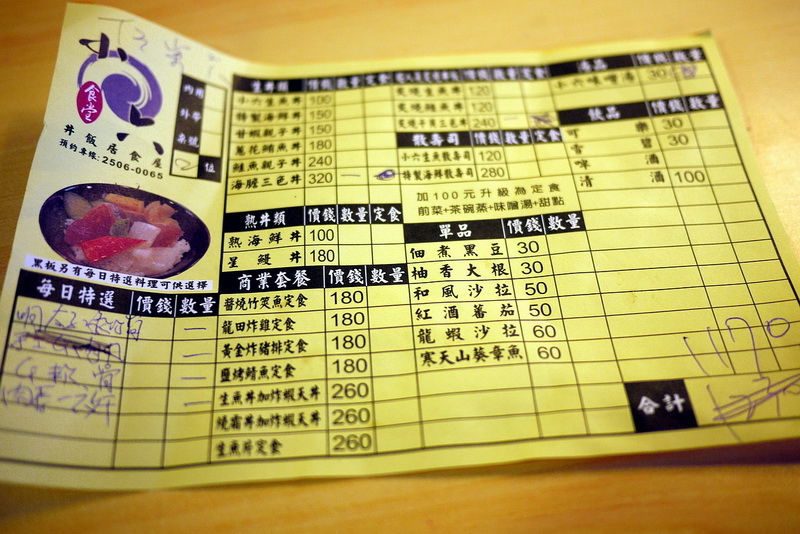 小六
食堂
丼飯居食屋
預約專線:2506-0065
內用
外帶
桌號
位
黑板另有每日特選料理可供選擇
每日特選 價錢 數量
生丼類 價錢 數量 定食
小六生魚丼 100
特製海鮮丼 150
甘蝦親子丼 150
蔥花鮪魚丼 180
鮭魚親子丼 240
海膽三色丼 320
熱丼類 價錢 數量 定食
熱海鮮丼 100
星鰻丼 180
商業套餐 價錢 數量
醬燒竹筴魚定食 180
龍田炸雞定食 180
黃金炸豬排定食 180
鹽烤鯖魚定食 180
生魚丼加炸蝦天丼 260
燒霜丼加炸蝦天丼 260
生魚片定食 260
價錢 數量 定食
炙燒生魚丼 120
炙燒鮭魚丼 120
炙燒半肉三色丼 240
散壽司 價錢 數量 定食
小六生魚散壽司 120
特製海鮮散壽司 280
加100元升級為定食
前菜+茶碗蒸+味噌湯+甜點
單品 價錢 數量
佃煮黑豆 30
柚香大根 30
和風沙拉 50
紅酒蕃茄 50
龍蝦沙拉 60
寒天山葵章魚 60
湯品 價錢 數量
小六味噌湯 30
飲品 價錢 數量
可樂 30
雪碧 30
啤酒
清酒 100
合計
1170